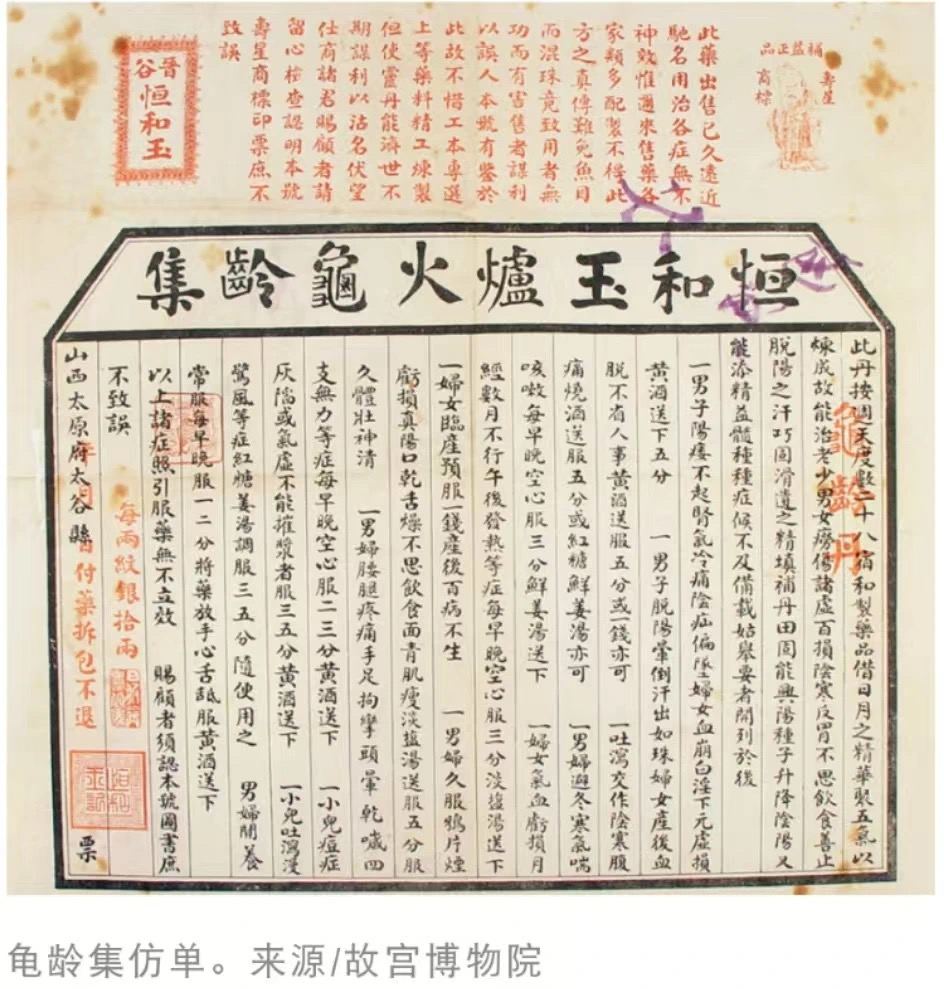 補益正品
壽星
商標
此藥出售已久遠近
馳名用治各症無不
神效惟邇來售藥各
家類多配製不得此
方之真傳難免魚目
而混珠竟致用者無
功而有害售者謀利
以誤人本號有鑒於
此故不惜工本專選
上等藥料精工煉製
但使靈丹能濟世不
期謀利以沽名伏望
仕商諸君賜顧者請
留心檢查認明本號
壽星商標印票庶不
致誤
晉谷
恒和玉
恒和玉爐火龜齡集
此丹按週天度數二十八宿和製藥品借日月之精華聚五氣以
煉成故能治老少男女癆傷諸虛百損陰寒反胃不思飲食善止
脫陽之汗巧固滑遺之精填補丹田固能興陽種子升降陰陽又
能添精益髓種種症候不及備載姑舉要者開列於後
一男子陽痿不起腎氣冷痛陰症偏墜婦女血崩白淫下元虛損
黃酒送下五分 一男子脫陽暈倒汗出如珠婦女產後血
脫不省人事黃酒送服五分或一錢亦可 一吐瀉交作陰寒腹
痛燒酒送服五分或紅糖鮮姜湯亦可 一男婦遇冬寒氣喘
咳嗽每早晚空心服三分鮮姜湯送下 一婦女氣血虧損月
經數月不行午後發熱等症每早晚空心服三分淡鹽湯送下
一婦女臨產預服一錢產後百病不生 一男婦久服鴉片煙
虧損真陽口乾舌燥不思飲食面青肌瘦淡鹽湯送服五分服
久體壯神清 一男婦腰腿疼痛手足拘攣頭暈乾嘁四
支無力等症每早晚空心服二三分黃酒送下 一小兒痘症
灰陷或氣虛不能摧漿者服三五分黃酒送下 一小兒吐瀉漫
驚風等症紅糖姜湯調服三五分隨使用之 男婦閒養
常服每早晚服一二分將藥放手心舌舐服黃酒送下
以上諸症照引服藥無不立效 賜顧者須認本號圖書庶
不致誤
每兩紋銀拾兩
山西太原府太谷縣 票
年 月 日付藥拆包不退
龜齡丹
龟龄集仿单。来源/故宫博物院